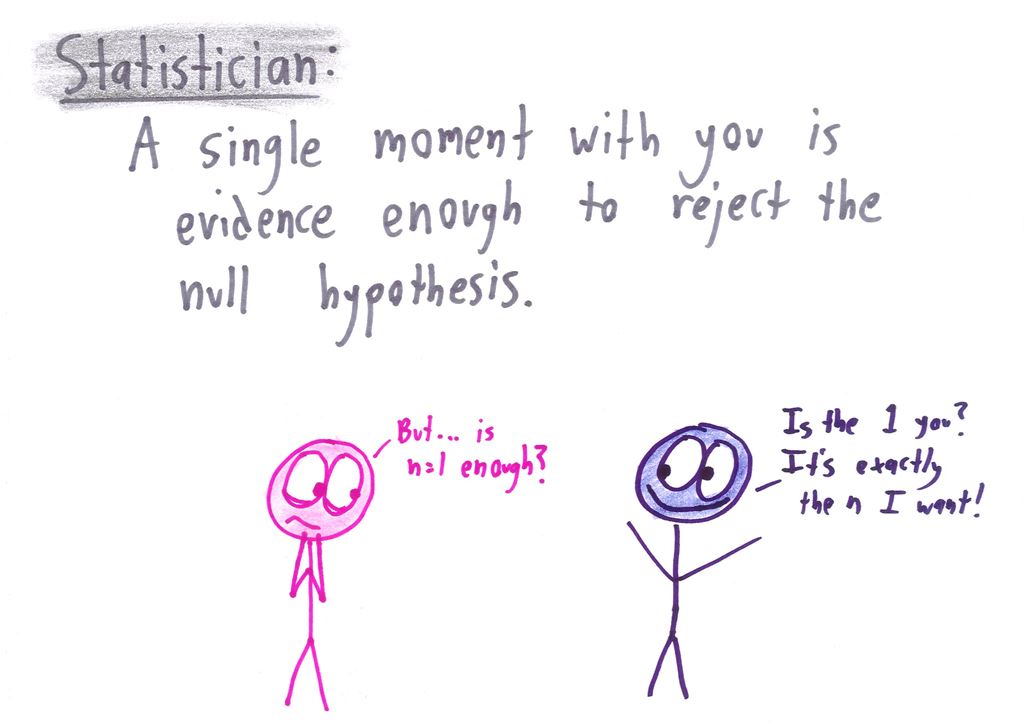 Statistician:
A single moment with you is
evidence enough to reject the
null hypothesis.
But... is
n=1 enough?
Is the 1 you?
It's exactly
the n I want!